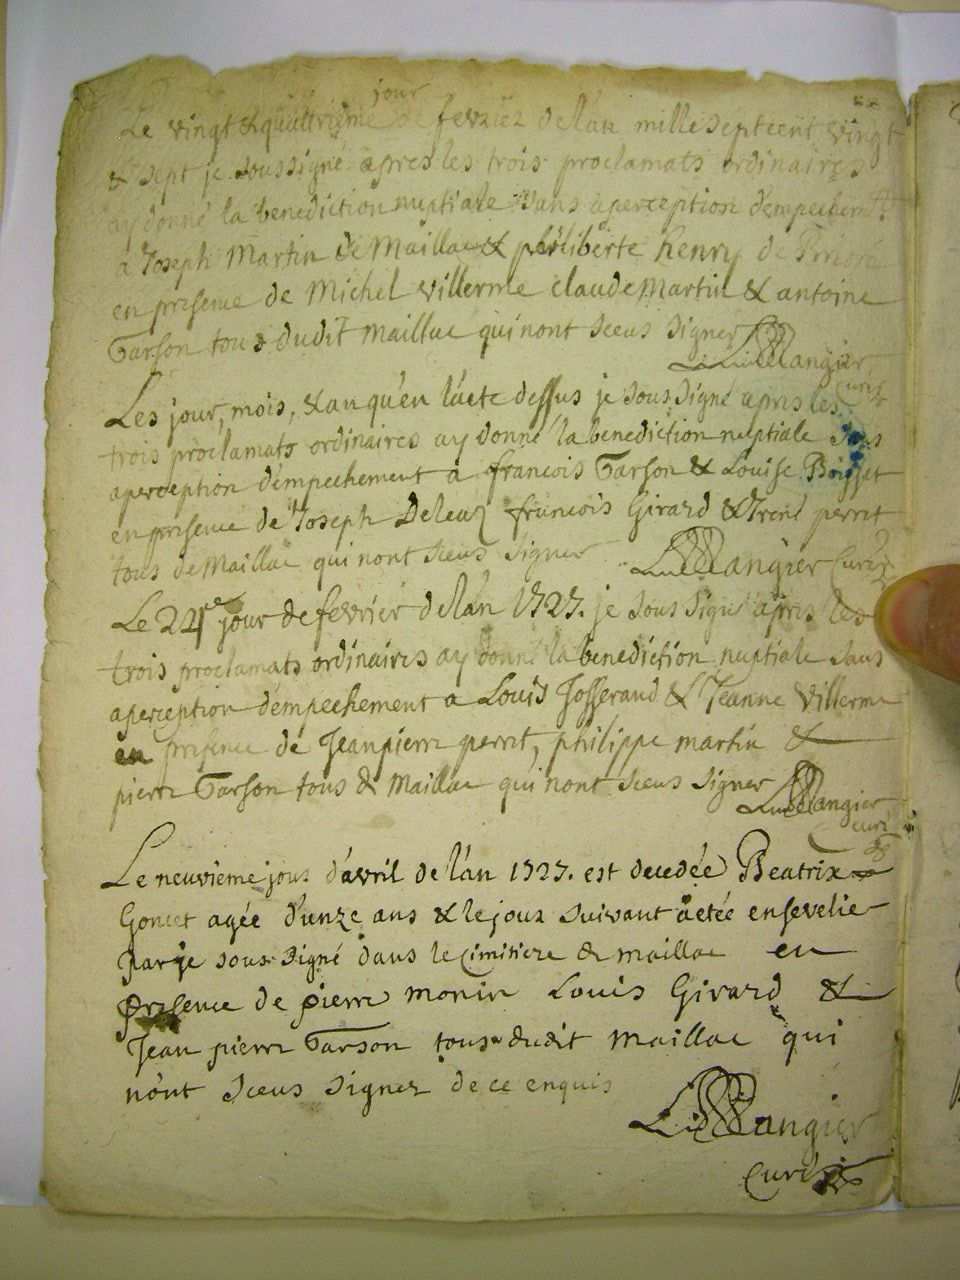 jour
Le vingt & quattrieme de fevrier de l'an mille sept cent vingt
& sept je soussigné apres les trois proclamats ordinaires
ay donné la benediction nuptiale sans aperception d'empechemt
a Joseph Martin de Maillac & philiberte henry de
en presence de Michel villerme claude Martin & antoine
Tarson tous dudit Maillac qui nont sceus signer
Mangier
Curé
Les jour, mois, & an qu'en l'acte dessus je soussigné apres les
trois proclamats ordinaires ay donné la benediction nuptiale sans
aperception d'empechement a francois Tarson & Louise
en presence de Joseph Deleuz francois Girard & Irené perret
tous de Maillac qui nont sceus signer Mangier Curé
Le 24e jour de fevrier de l'an 1727. je sous signé apres les
trois proclamats ordinaires ay donné la benediction nuptiale sans
aperception d'empechement a Louis Josserand & Jeanne villerme
en presence de Jeanpierre perret, philippe martin &
pierre Tarson tous de Maillac qui nont sceus signer
Mangier
curé
Le neuvieme jour d'avril de l'an 1727. est decedée Beatrix
Goncet agée d'unze ans & le jour suivant a etée ensevelie
par je sous signé dans le Cimitiere de maillac en
presence de pierre monin Louis Girard &
Jean pierre Tarson tous dudit Maillac qui
n'ont sceus signer de ce enquis
Mangier
Curé